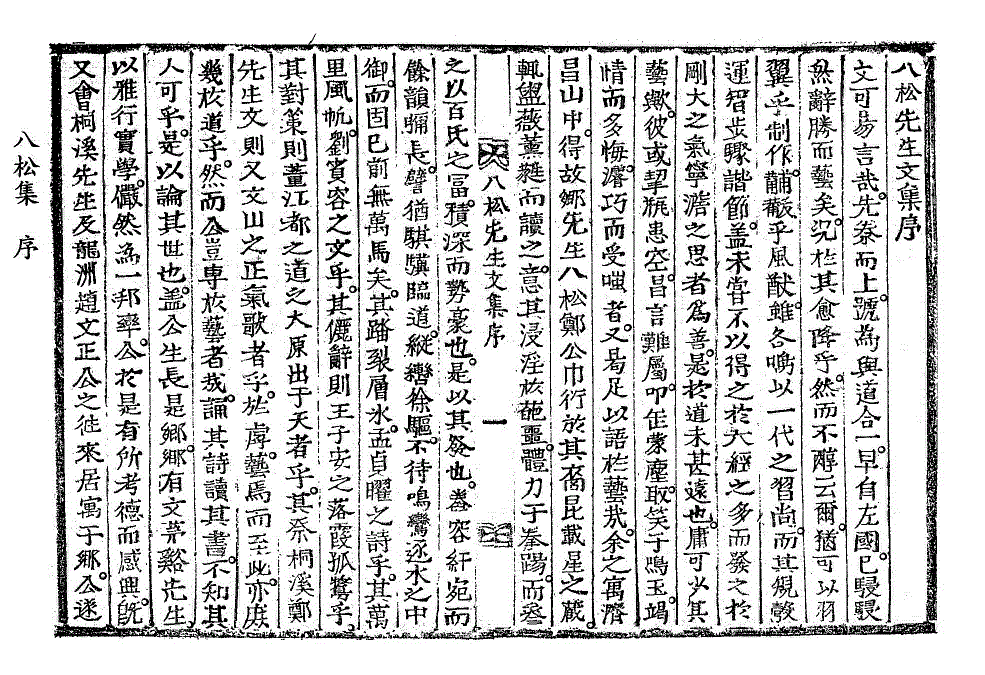 八松先生文集序
文可易言哉。先秦而上。號為與道合一。早自左國。已駸駸
然辭勝而藝矣。況於其愈降乎。然而不醇云爾。猶可以羽
翼乎制作。黼黻乎風猷。雖各鳴以一代之習尙。而其規彀
運智步驟諧節。盖未嘗不以得之於大經之多而發之於
剛大之氣寧澹之思者爲善。是於道未甚遠也。庸可少其
藝歟。彼或挈瓶患空。昌言難屬。叩缶蒙塵。取笑于鳴玉。竭
情而多悔。濯巧而受嗤者。又曷足以語於藝哉。余之寓濟
昌山中。得故鄕先生八松鄭公巾衍於其裔昆戴星之藏。
輒盥薇薰蕕而讀之。意其浸淫於葩噩。體力于拳踢。而叅
八松先生文集序
一
之以百氏之富。積深而勢豪也。是以其發也。舂容紆宛而
餘韻彌長。譬猶騏驥臨道。縱轡徐驅。不待鳴鸞逐水之中
御。而固已前無萬馬矣。其踏裂層氷。孟貞曜之詩乎。其萬
里風帆。劉賓客之文乎。其儷辭則王子安之落霞孤鶩乎。
其對策則董江都之道之大原出于天者乎。其祭桐溪鄭
先生文則又文山之正氣歌者乎。於虖。藝焉而至此。亦庶
幾於道乎。然而公豈專於藝者哉。誦其詩讀其書。不知其
人可乎。是以論其世也。盖公生長是鄕。鄕有文茅谿先生
以雅行實學。儼然爲一邦率。公於是有所考德而感興。旣
又會桐溪先生及龍洲趙文正公之徃來居寓于鄕。公遂
八松集 序